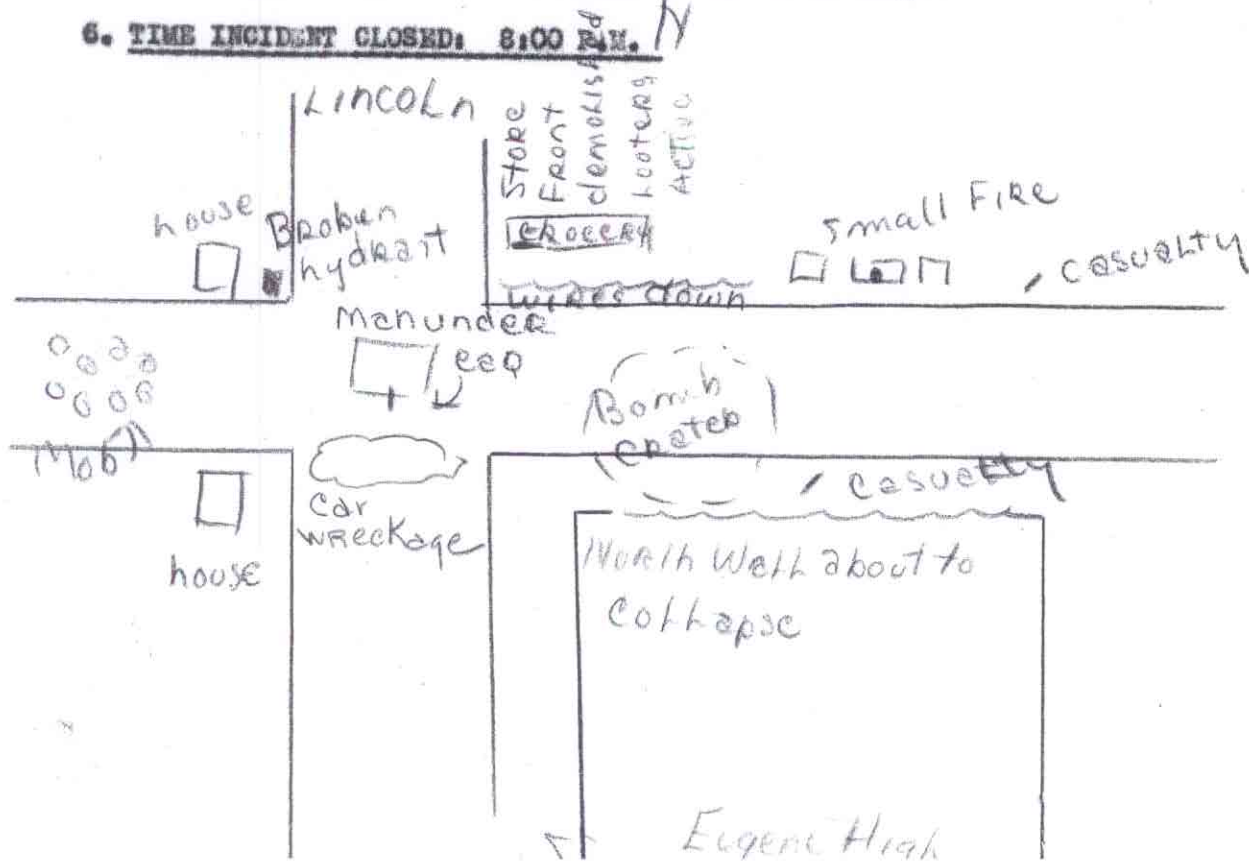 6. TIME INCIDENT CLOSED: 8:00 P.M.
N
LincoLn
Store
Front
demolished
Looters
Active
house
Broken
hydrant
Grocery
Small Fire
casualty
wires down
Man under
car
Bomb
crater
Mob
casualty
Car
wreckage
house
North Wall about to
Collapse
Eugene High